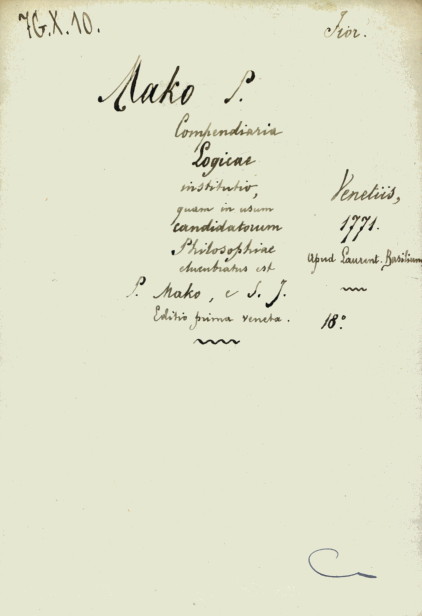 7G.X.10.
Fior.
Mako P.
Compendiaria
Logicae
institutio,
quam in usum
candidatorum
Philosophiae
elucubratus est
P. Mako, e S. J.
Editio prima veneta.
Venetiis,
1771.
apud Laurent. Basilium
18°